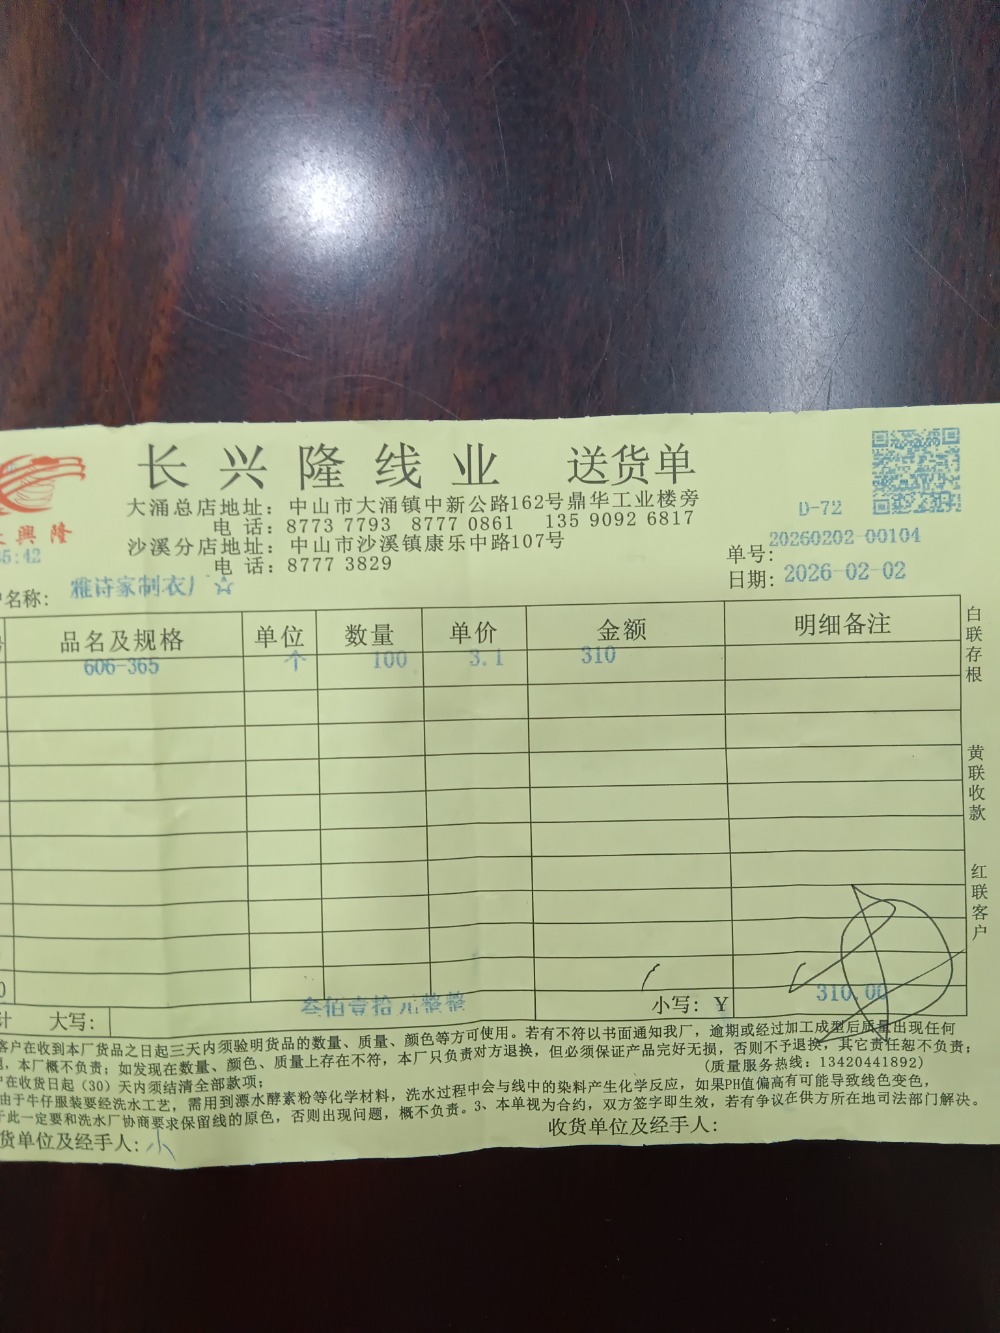 长兴隆线业 送货单
大涌总店地址：中山市大涌镇中新公路162号鼎华工业楼旁
电 话：8773 7793 8777 0861 135 9092 6817
D-72
興隆
沙溪分店地址：中山市沙溪镇康乐中路107号
5:42
电 话：8777 3829
单号：20260202-00104
日期：2026-02-02
名称：雅诗家制衣厂☆
品名及规格 单位 数量 单价 金额 明细备注
606-365 个 100 3.1 310
白联存根
黄联收款
红联客户
计 大写： 叁佰壹拾元整整 小写：￥ 310.00
客户在收到本厂货品之日起三天内须验明货品的数量、质量、颜色等方可使用。若有不符以书面通知我厂，逾期或经过加工成型后质量出现任何
，本厂概不负责；如发现在数量、颜色、质量上存在不符，本厂只负责对方退换，但必须保证产品完好无损，否则不予退换，其它责任恕不负责；
在收货日起（30）天内须结清全部款项； （质量服务热线：13420441892）
由于牛仔服装要经洗水工艺，需用到漂水酵素粉等化学材料，洗水过程中会与线中的染料产生化学反应，如果PH值偏高有可能导致线色变色，
于此一定要和洗水厂协商要求保留线的原色，否则出现问题，概不负责。3、本单视为合约，双方签字即生效，若有争议在供方所在地司法部门解决。
货单位及经手人：小 收货单位及经手人：